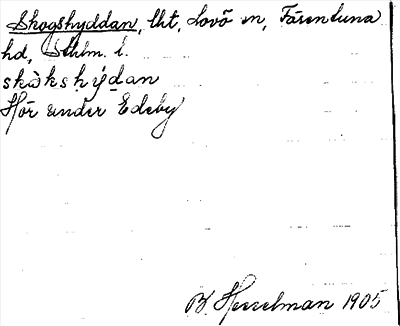 Skogshyddan, lht, Lovö sn, Färentuna
hd, Sthlm. l.
skòkshýdan
Hör under Edeby
B. Hesselman 1905